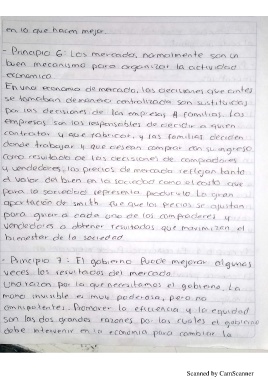 en lo que hacen mejor.
- Principio 6: Los mercados normalmente son un
buen mecanismo para organizar la actividad
económica
En una economía de mercado, las decisiones que antes
se tomaban de manera centralizada son sustituidas
por las decisiones de las empresas y familias. Las
empresas son las responsables de decidir a quien
contratar y que fabricar, y las familias deciden
donde trabajar y que desean comprar con su ingreso
como resultado de las decisiones de compradores
y vendedores, los precios de mercado reflejan tanto
el valor del bien en la sociedad como el costo que
para la sociedad representa producirlo. La gran
aportación de smith fue que los precios se ajustan
para guiar a cada uno de los compradores y
vendedores a obtener resultados que maximizan el
bienestar de la sociedad.
- Principio 7: El gobierno Puede mejorar algunas
veces los resultados del mercado
Una razón por la que necesitamos el gobierno, la
mano invisible es muy poderosa, pero no
omnipotentes. Promover la eficiencia y la equidad
son las dos grandes razones por las cuales el gobierno
debe intervenir en la economía para cambiar la
Scanned by CamScanner